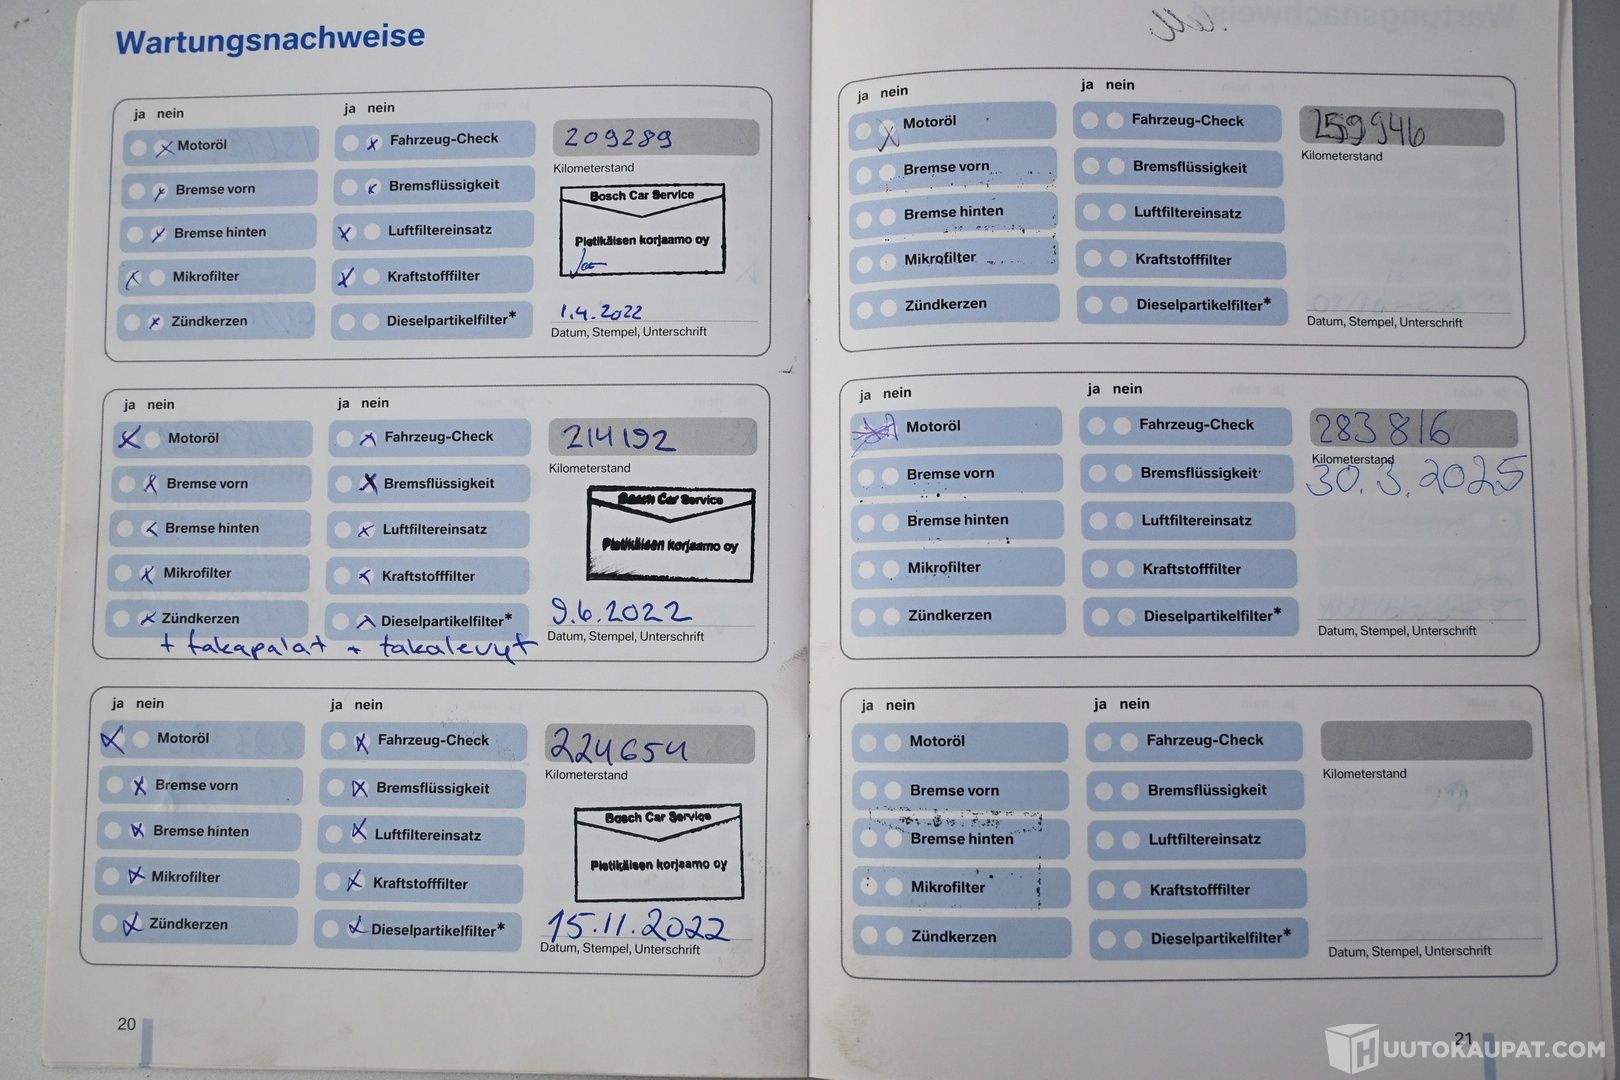 Wartungsnachweise
ja nein
ja nein
Motoröl
Fahrzeug-Check
209289
Kilometerstand
Bremse vorn
Bremsflüssigkeit
Bosch Car Service
Bremse hinten
Luftfiltereinsatz
Pietikäisen korjaamo oy
Mikrofilter
Kraftstofffilter
Zündkerzen
Dieselpartikelfilter*
1.4.2022
Datum, Stempel, Unterschrift
ja nein
ja nein
Motoröl
Fahrzeug-Check
214192
Kilometerstand
Bremse vorn
Bremsflüssigkeit
Bosch Car Service
Bremse hinten
Luftfiltereinsatz
Pietikäisen korjaamo oy
Mikrofilter
Kraftstofffilter
Zündkerzen
Dieselpartikelfilter*
9.6.2022
Datum, Stempel, Unterschrift
+ takapalat + takalevyt
ja nein
ja nein
Motoröl
Fahrzeug-Check
224654
Kilometerstand
Bremse vorn
Bremsflüssigkeit
Bosch Car Service
Bremse hinten
Luftfiltereinsatz
Pietikäisen korjaamo oy
Mikrofilter
Kraftstofffilter
Zündkerzen
Dieselpartikelfilter*
15.11.2022
Datum, Stempel, Unterschrift
20
ja nein
ja nein
Motoröl
Fahrzeug-Check
259946
Kilometerstand
Bremse vorn
Bremsflüssigkeit
Bremse hinten
Luftfiltereinsatz
Mikrofilter
Kraftstofffilter
Zündkerzen
Dieselpartikelfilter*
Datum, Stempel, Unterschrift
ja nein
ja nein
Motoröl
Fahrzeug-Check
283816
Kilometerstand
30.3.2025
Bremse vorn
Bremsflüssigkeit
Bremse hinten
Luftfiltereinsatz
Mikrofilter
Kraftstofffilter
Zündkerzen
Dieselpartikelfilter*
Datum, Stempel, Unterschrift
ja nein
ja nein
Motoröl
Fahrzeug-Check
Kilometerstand
Bremse vorn
Bremsflüssigkeit
Bremse hinten
Luftfiltereinsatz
Mikrofilter
Kraftstofffilter
Zündkerzen
Dieselpartikelfilter*
Datum, Stempel, Unterschrift
21
HUUTOKAUPAT.COM